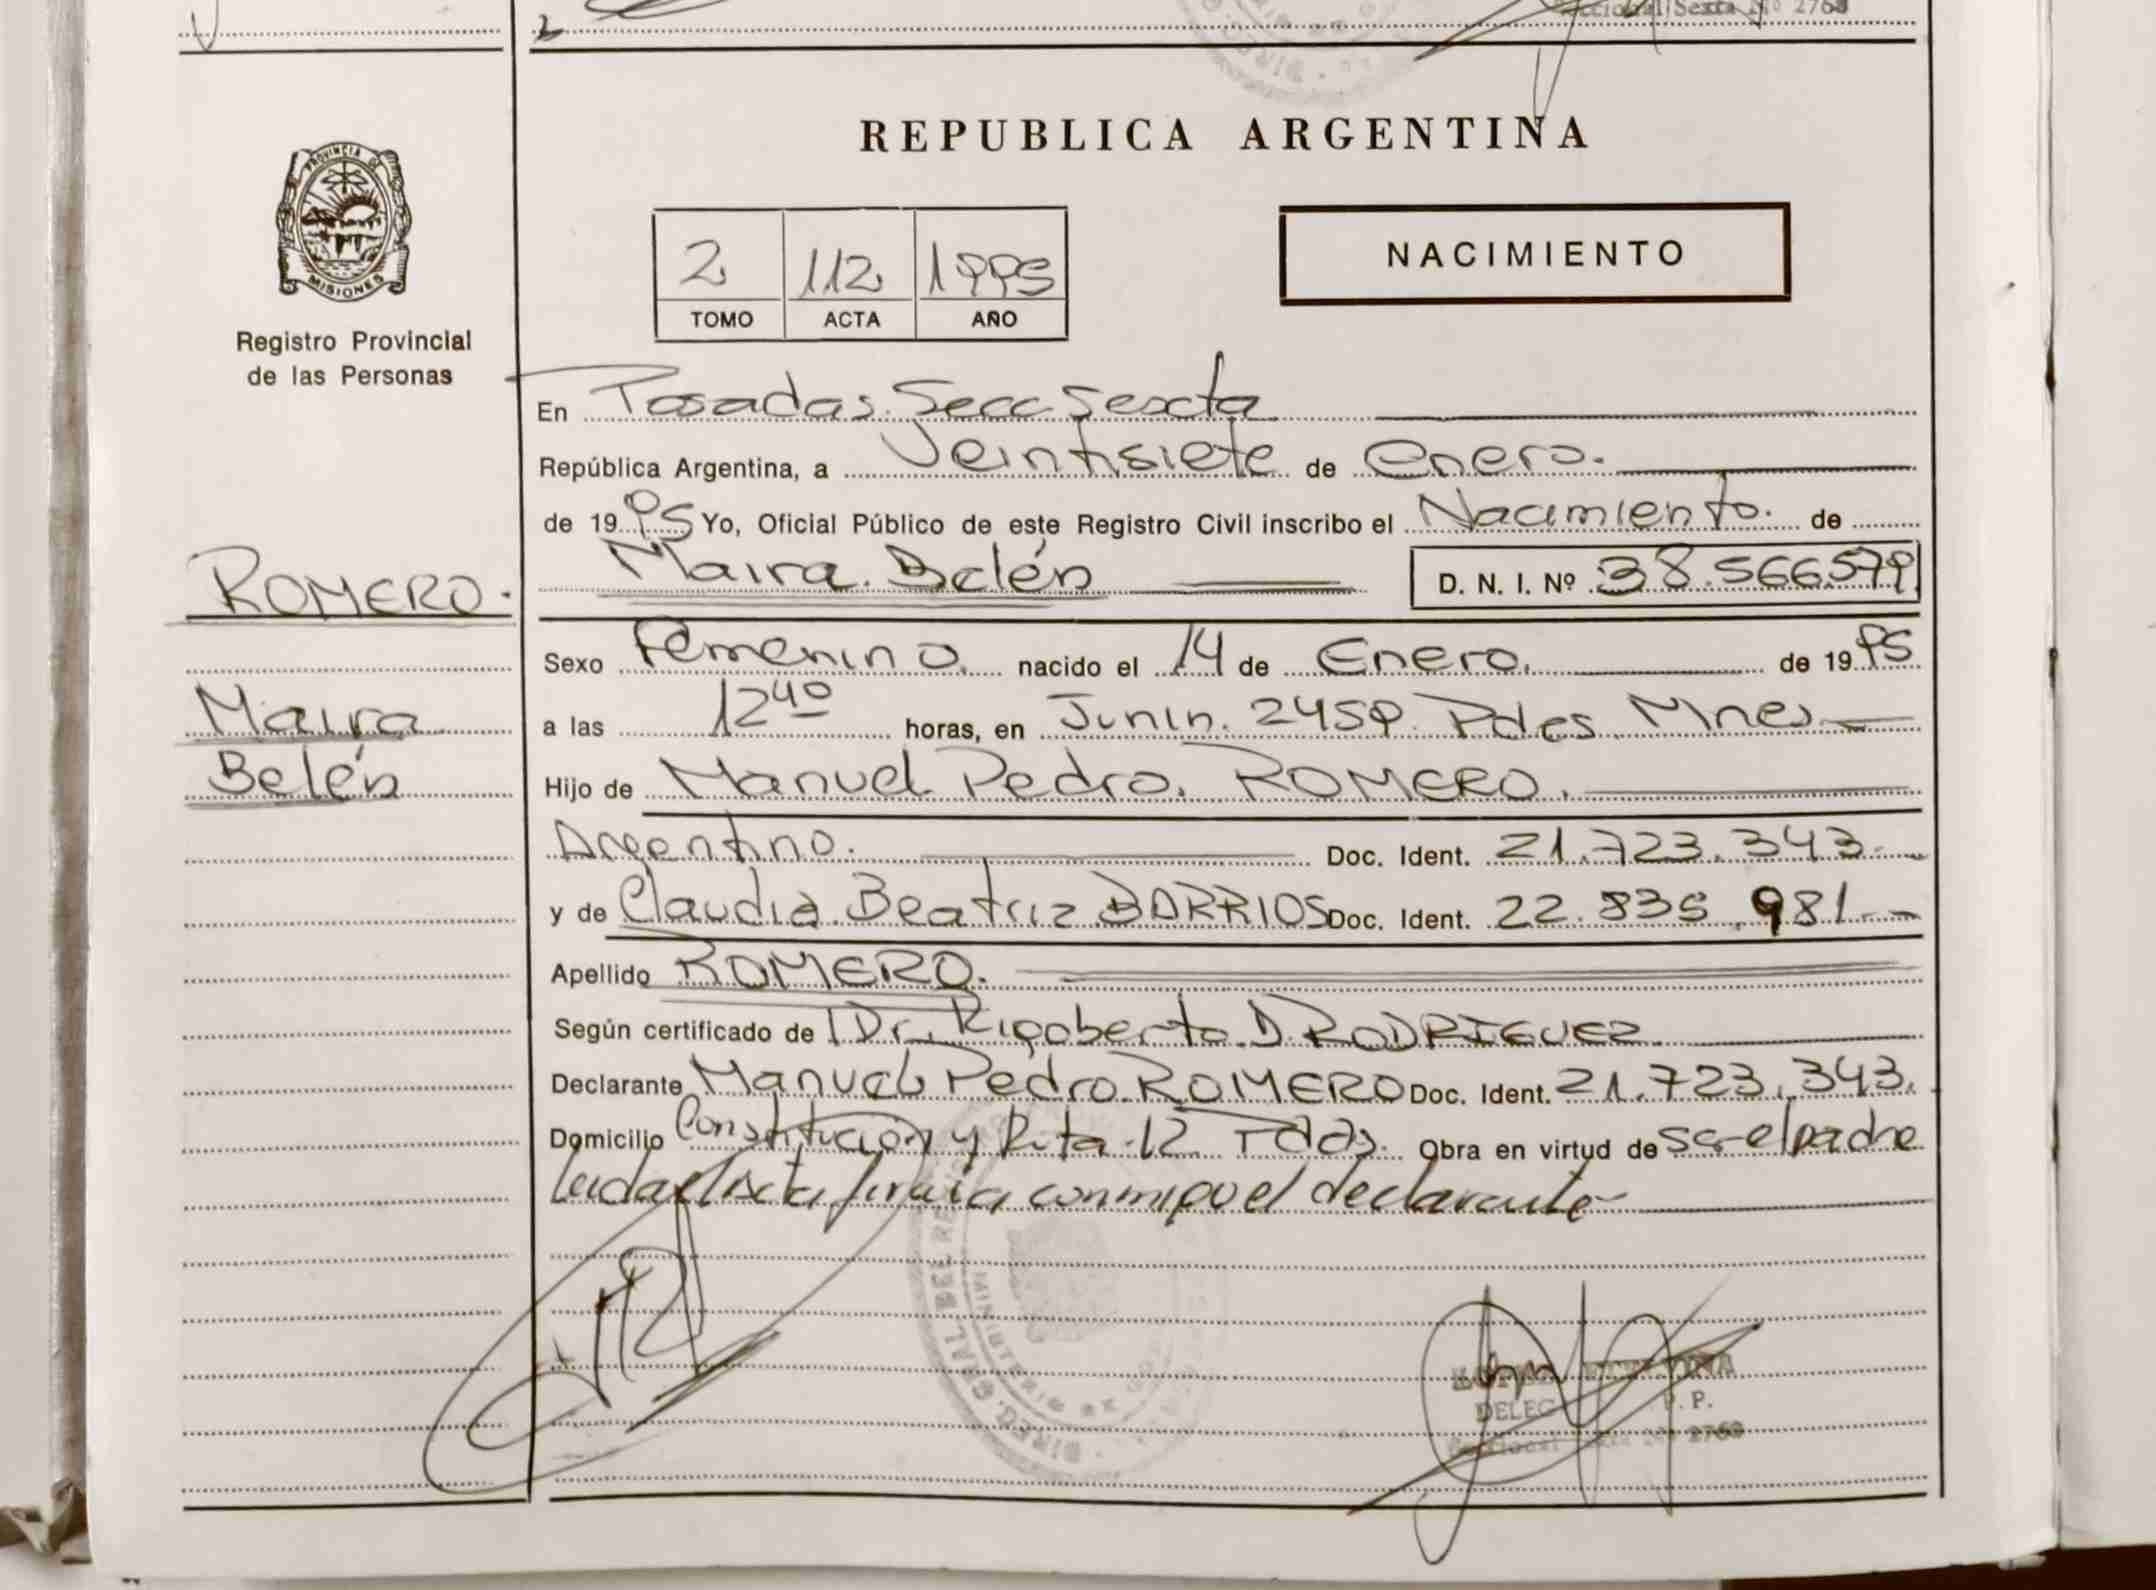 2
REPUBLICA ARGENTINA
NACIMIENTO
PROVINCIA DE
MISIONES
Registro Provincial
de las Personas
2 112 1995
TOMO ACTA AÑO
En Posadas. Secc. Sexta
República Argentina, a Veintisiete de Enero.
de 1995 Yo, Oficial Público de este Registro Civil inscribo el Nacimiento. de
Maira Belén D. N. I. Nº 38.566579
ROMERO.
Maira
Belén
Sexo Femenino. nacido el 14 de Enero. de 1995
a las 12 40 horas, en Junin. 2459. Pdas Mnes
Hijo de Manuel Pedro. ROMERO.
Argentino. Doc. Ident. 21.723.343.
y de Claudia Beatriz BARRIOS Doc. Ident. 22.835.981
Apellido ROMERO.
Según certificado de Dr. Rigoberto D. RODRIGUEZ
Declarante Manuel Pedro ROMERO Doc. Ident. 21.723.343.
Domicilio Constitución y Ruta 12 Pdas. Obra en virtud de ser el padre
Leida el acta firma conmigo el declarante
DELEG P. P.
2760